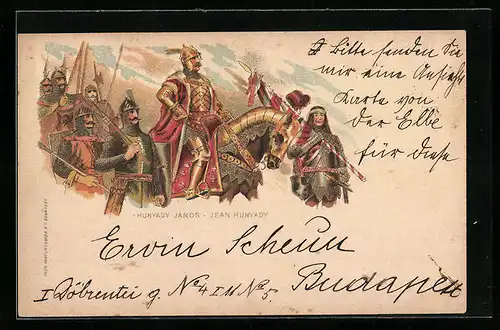 Bitte senden Sie
mir eine Ansicht
Karte von
der Elbe
für diese
HUNYADY JÁNOS - JEAN HUNYADY
Ervin Scheun
Budapest
I Döbrentei g. No 4 I No 5.